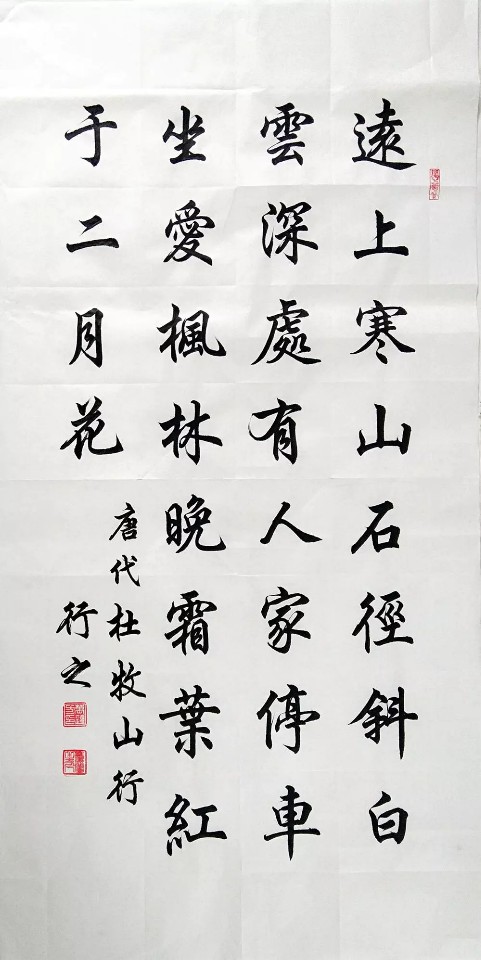 遠上寒山石徑斜白
雲深處有人家停車
坐愛楓林晚霜葉紅
于二月花
唐代杜牧山行
行之